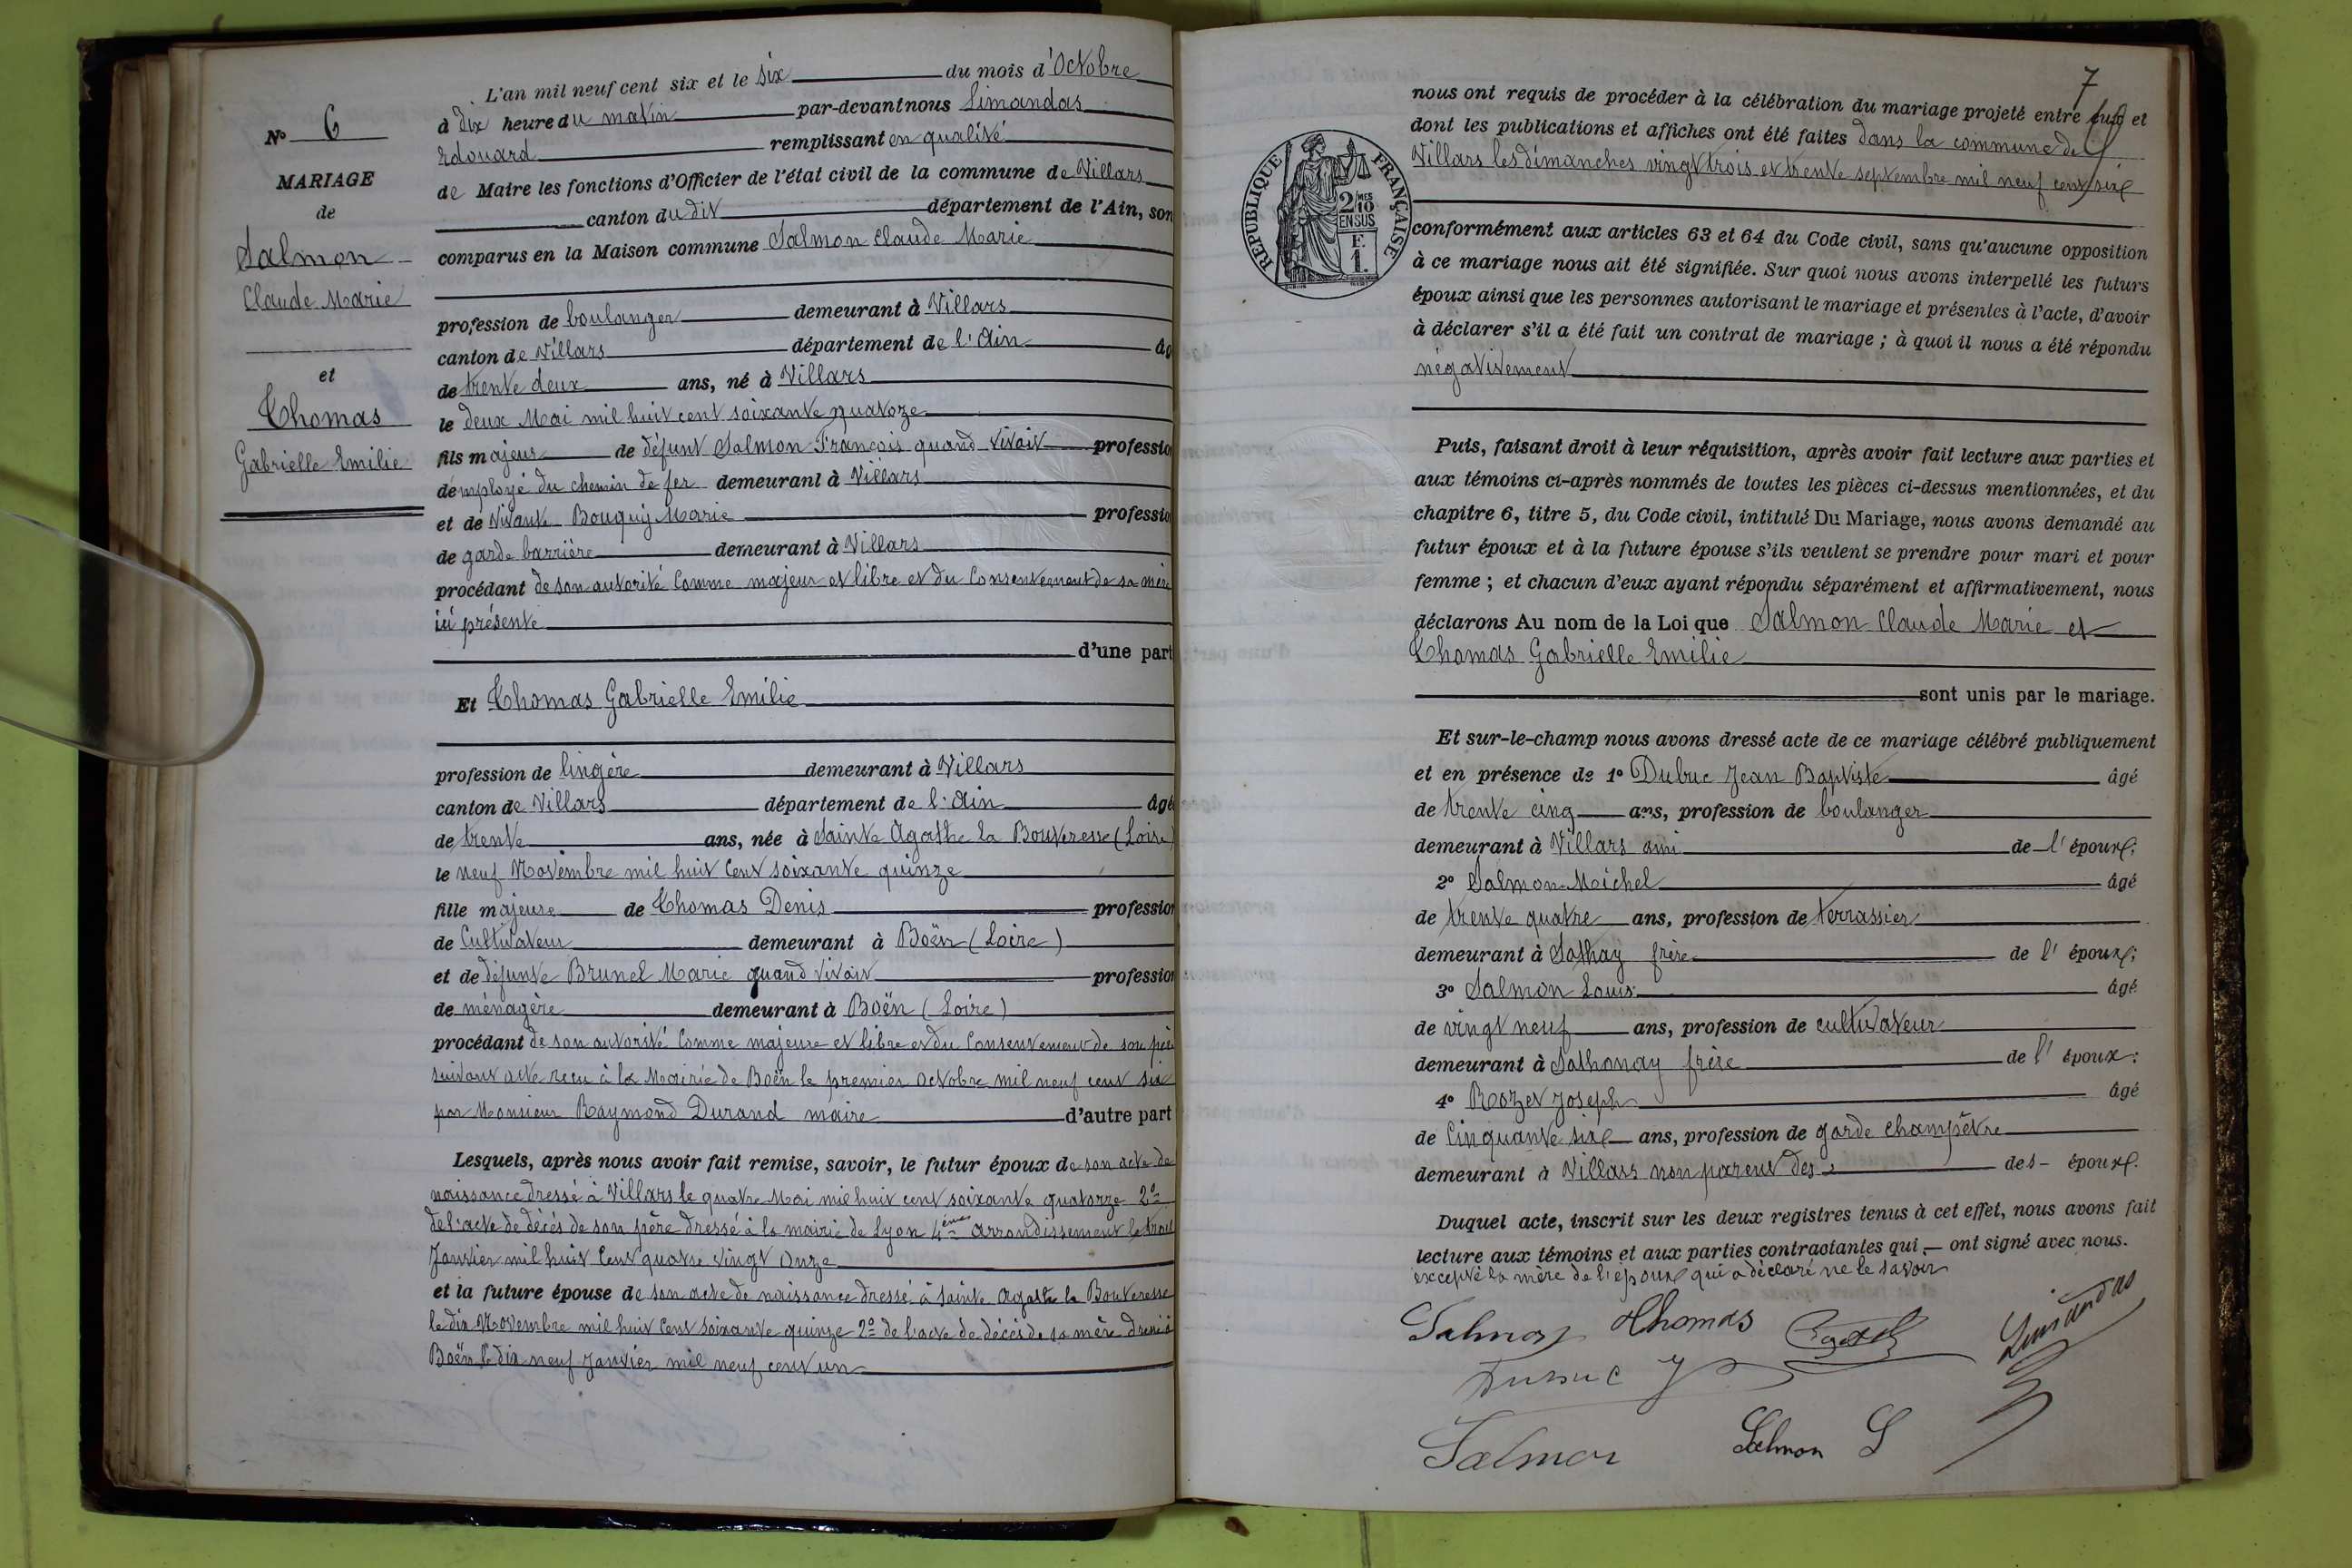 N° 6
MARIAGE
de
Salmon
Claude Marie
et
Thomas
Gabrielle Emilie
L'an mil neuf cent six et le six du mois d'Octobre
à dix heure du matin par-devant nous Limandas
Edouard remplissant en qualité
de Maire les fonctions d'Officier de l'état civil de la commune de Villars
canton du dit département de l'Ain, son
comparus en la Maison commune Salmon Claude Marie
profession de boulanger demeurant à Villars
canton de Villars département de l'Ain âg
de trente deux ans, né à Villars
le deux Mai mil huit cent soixante quatoze
fils majeur de défunt Salmon François quand vivait professio
d'employé du chemin de fer demeurant à Villars
et de vivante Bouquiy Marie professio
de garde barrière demeurant à Villars
procédant de son autorité comme majeur et libre et du consentement de sa mère
ici présente
d'une part
Et Thomas Gabrielle Emilie
profession de lingère demeurant à Villars
canton de Villars département de l'Ain âgé
de trente ans, née à Sainte Agathe la Bouteresse (Loire)
le neuf Novembre mil huit cent soixante quinze
fille majeure de Thomas Denis profession
de Cultivateur demeurant à Boën (Loire)
et de défunte Brunel Marie quand vivait profession
de ménagère demeurant à Boën (Loire)
procédant de son autorité comme majeure et libre et du consentement de son père
suivant acte reçu à la Mairie de Boën le premier Octobre mil neuf cent six
par Monsieur Raymond Durand maire d'autre part
Lesquels, après nous avoir fait remise, savoir, le futur époux de son acte de
naissance dressé à Villars le quatre Mai mil huit cent soixante quatorze 2°
de l'acte de décès de son père dressé à la mairie de Lyon 4ème arrondissement le trois
Janvier mil huit cent quatre vingt onze
et la future épouse de son acte de naissance dressé à Sainte Agathe la Bouteresse
le dix Novembre mil huit cent soixante quinze 2° de l'acte de décès de sa mère dressé à
Boën le dix neuf Janvier mil neuf cent un
7
nous ont requis de procéder à la célébration du mariage projeté entre eux et
dont les publications et affiches ont été faites dans la commune de
Villars les dimanches vingt trois et trente septembre mil neuf cent six
RÉPUBLIQUE FRANÇAISE
2/10 MES
EN SUS
F.
1.
conformément aux articles 63 et 64 du Code civil, sans qu'aucune opposition
à ce mariage nous ait été signifiée. Sur quoi nous avons interpellé les futurs
époux ainsi que les personnes autorisant le mariage et présentes à l'acte, d'avoir
à déclarer s'il a été fait un contrat de mariage ; à quoi il nous a été répondu
négativement
Puis, faisant droit à leur réquisition, après avoir fait lecture aux parties et
aux témoins ci-après nommés de toutes les pièces ci-dessus mentionnées, et du
chapitre 6, titre 5, du Code civil, intitulé Du Mariage, nous avons demandé au
futur époux et à la future épouse s'ils veulent se prendre pour mari et pour
femme ; et chacun d'eux ayant répondu séparément et affirmativement, nous
déclarons Au nom de la Loi que Salmon Claude Marie et
Thomas Gabrielle Emilie
sont unis par le mariage.
Et sur-le-champ nous avons dressé acte de ce mariage célébré publiquement
et en présence de 1° Dubuc Jean Baptiste âgé
de trente cinq ans, profession de boulanger
demeurant à Villars ami de l'époux;
2° Salmon Michel âgé
de trente quatre ans, profession de terrassier
demeurant à Sathay frère de l'époux;
3° Salmon Louis âgé
de vingt neuf ans, profession de cultivateur
demeurant à Sathonay frère de l'époux;
4° Rozet Joseph âgé
de Cinquante six ans, profession de garde champêtre
demeurant à Villars non parent des des époux.
Duquel acte, inscrit sur les deux registres tenus à cet effet, nous avons fait
lecture aux témoins et aux parties contractantes qui ont signé avec nous.
excepté la mère de l'époux qui a déclaré ne le savoir
Salmon Thomas
Limandas
Salmon Salmon S